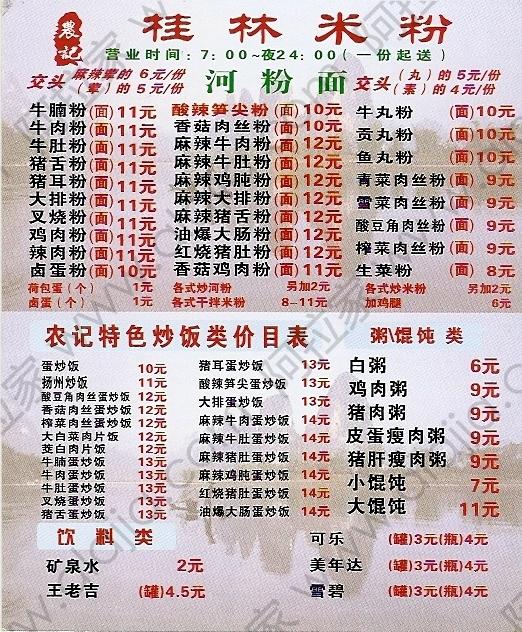 農記 桂林米粉
营业时间：7：00~夜24：00（一份起送）
交头 麻辣荤的 6元/份 （荤）的 5元/份 河粉面 交头 （丸）的 5元/份 （素）的 4元/份
牛腩粉(面)11元 酸辣笋尖粉(面)10元 牛丸粉(面)10元
牛肉粉(面)11元 香菇肉丝粉(面)10元 贡丸粉(面)10元
牛肚粉(面)11元 麻辣牛肉粉(面)12元 鱼丸粉(面)10元
猪舌粉(面)11元 麻辣牛肚粉(面)12元 青菜肉丝粉(面)9元
猪耳粉(面)11元 麻辣鸡肫粉(面)12元 雪菜肉丝粉(面)9元
大排粉(面)11元 麻辣大排粉(面)12元 酸豆角肉丝粉(面)9元
叉烧粉(面)11元 麻辣猪舌粉(面)12元 榨菜肉丝粉(面)9元
鸡肉粉(面)11元 油爆大肠粉(面)12元 生菜粉(面)8元
辣肉粉(面)11元 红烧猪肚粉(面)12元
卤蛋粉(面)10元 香菇鸡肉粉(面)11元
荷包蛋（个）1元 各式炒河粉 另加2元 各式炒米粉 另加2元
卤蛋（个）1元 各式干拌米粉 8-11元 加鸡腿 6元
农记特色炒饭类价目表
蛋炒饭 10元 猪耳蛋炒饭 13元
扬州炒饭 11元 酸辣笋尖蛋炒饭 13元
酸豆角肉丝蛋炒饭 12元 大排蛋炒饭 13元
香菇肉丝蛋炒饭 12元 麻辣牛肉蛋炒饭 14元
榨菜肉丝蛋炒饭 12元 麻辣牛肚蛋炒饭 14元
大白菜肉片饭 12元 麻辣猪舌蛋炒饭 14元
茭白肉片饭 12元 麻辣大排蛋炒饭 14元
牛腩蛋炒饭 13元 麻辣鸡肫蛋炒饭 14元
牛肉蛋炒饭 13元 红烧猪肚蛋炒饭 14元
牛肚蛋炒饭 13元 油爆大肠蛋炒饭 14元
叉烧蛋炒饭 13元
猪舌蛋炒饭 13元
粥\馄饨 类
白粥 6元
鸡肉粥 9元
猪肉粥 9元
皮蛋瘦肉粥 9元
猪肝瘦肉粥 9元
小馄饨 7元
大馄饨 11元
饮料类
矿泉水 2元
王老吉 (罐)4.5元
可乐 (罐)3元(瓶)4元
美年达 (罐)3元(瓶)4元
雪碧 (罐)3元(瓶)4元